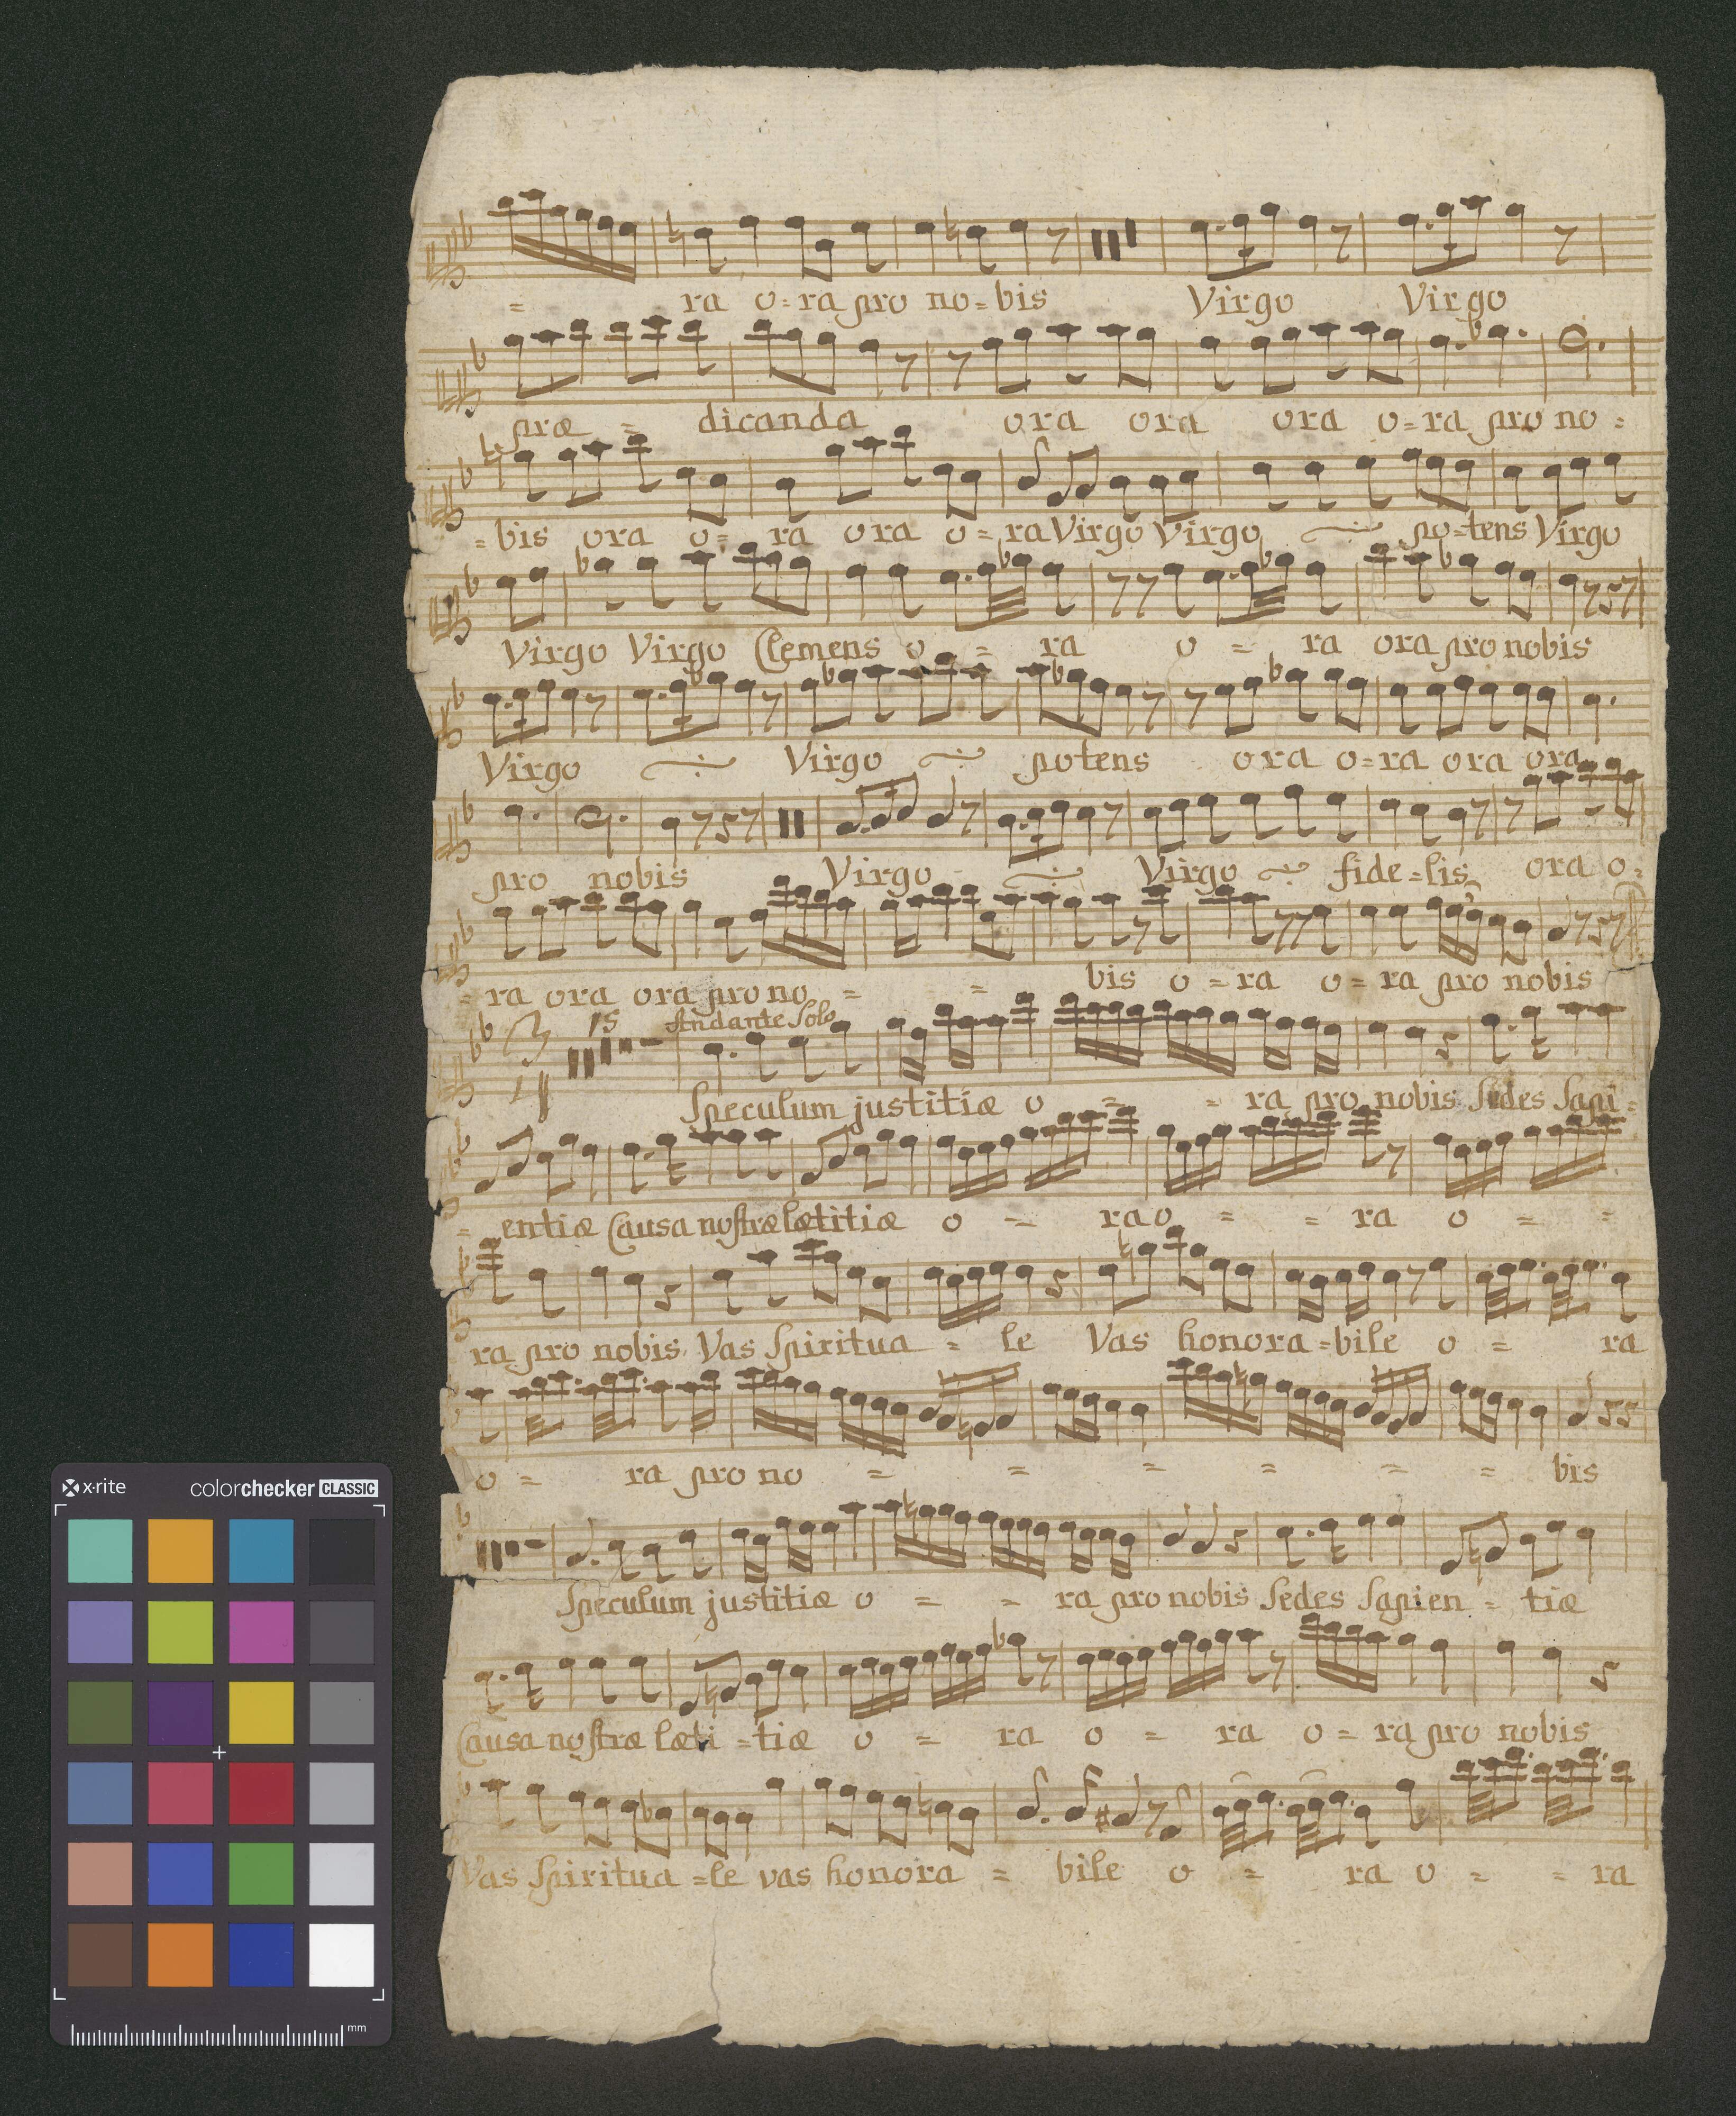 = ra o=ra pro no=bis Virgo Virgo
præ = dicanda ora ora ora o=ra pro no=
=bis ora o= ra ora o=ra Virgo Virgo po=tens Virgo
Virgo Virgo Clemens o = ra o = ra ora pro nobis
Virgo Virgo potens ora o=ra ora ora
pro nobis Virgo Virgo fide=lis ora o=
=ra ora ora pro no = = bis o=ra o=ra pro nobis
15 Andante Solo
Speculum justitiæ o = = ra pro nobis Sedes Sapi=
= entiæ Causa nostræ lætitiæ o = ra o = = ra o = =
ra pro nobis Vas Spiritua = le Vas honora=bile o = ra
o = ra pro no = = = = = = bis
Speculum justitiæ o = = ra pro nobis Sedes Sapien = tiæ
Causa nostræ læti=tiæ o = ra o = ra o=ra pro nobis
Vas Spiritua=le vas honora = bile o = ra o = = ra
x-rite colorchecker CLASSIC
mm